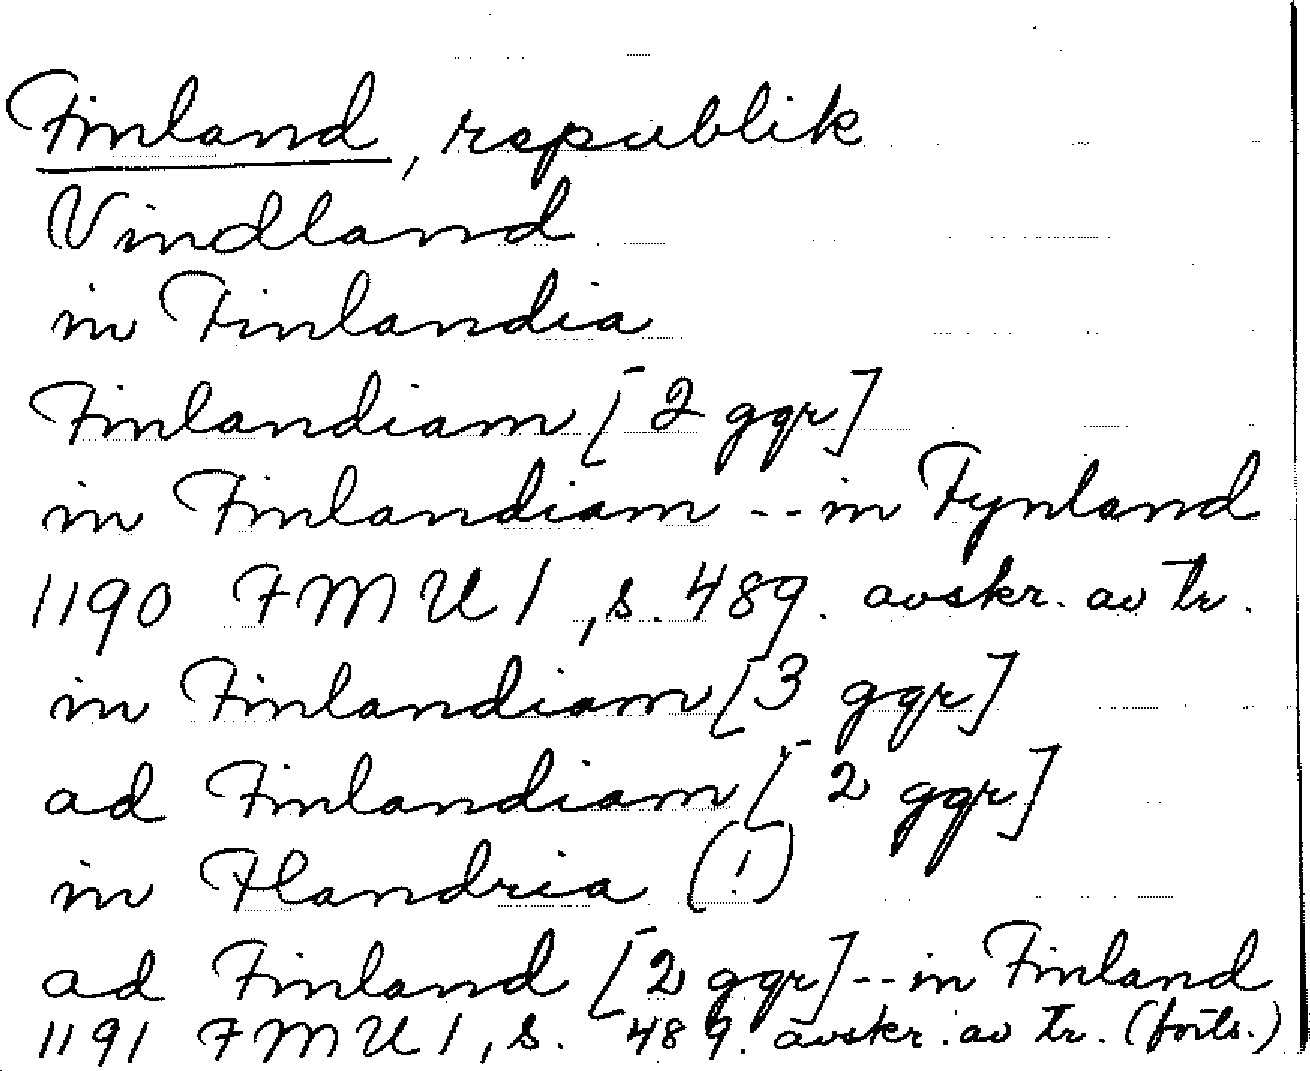 Finland, republik
Vindland
in Finlandia
Finlandiam [2 ggr]
in Finlandiam -- in Fynland
1190 FMU 1, s. 489. avskr. av tr.
in Finlandiam [3 ggr]
ad Finlandiam [2 ggr]
in Flandria (!)
ad Finland [2 ggr] -- in Finland
1191 FMU 1, s. 489. avskr. av tr. (forts.)